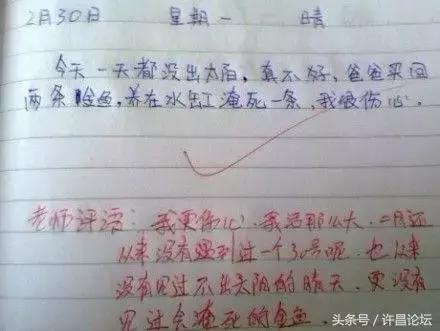 2月30日 星期一 晴
今天一天都没出太阳,真不好,爸爸买回
两条金鱼,养在水缸淹死一条,我很伤心.
老师评语:我更伤心.我活那么大,二月还
从来没有遇到过一个30号呢.也从来
没有见过不出太阳的晴天.更没有
见过会淹死的金鱼.
头条号/许昌论坛